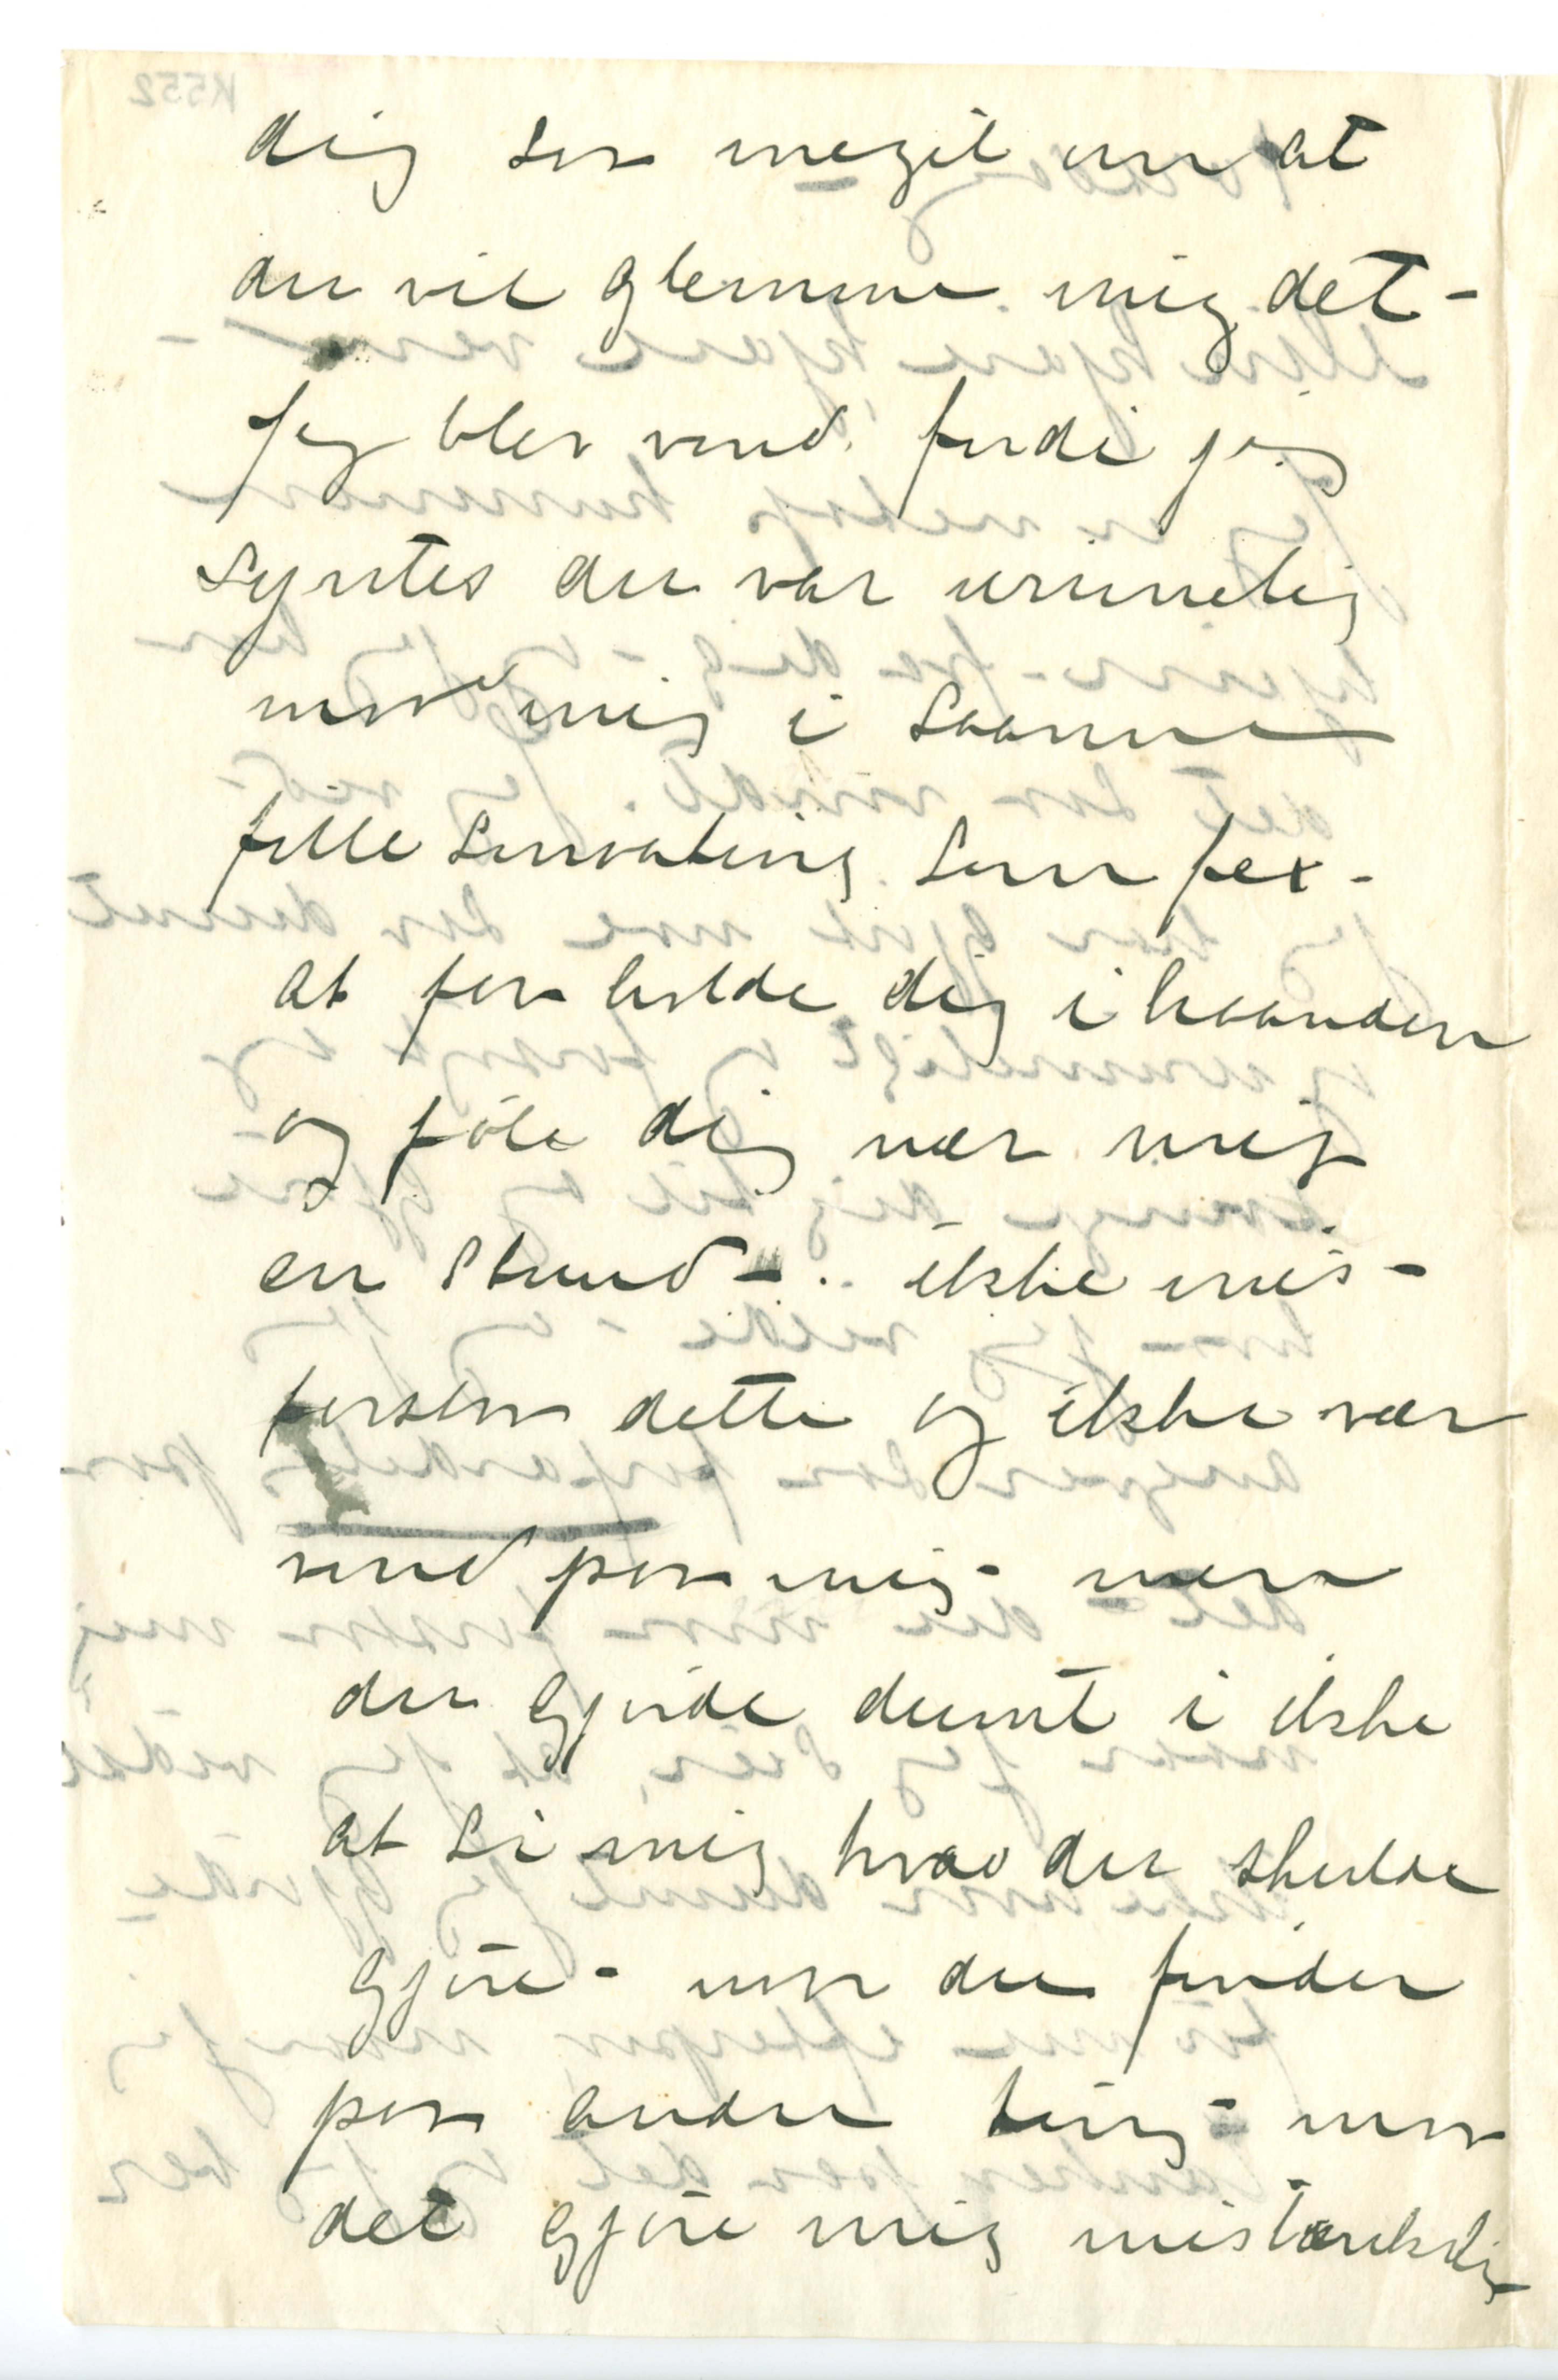 dig saa meget om at
du vil glemme mig det –
Jeg blev vond fordi jeg
syntes du var urimelig
mod mig i saanne
fille
at faa holde dig i haanden
og föle dig nær mig
en stund – . ikke mis-
forstaa dette og ikke vær
vond paa mig – men
du gjorde dumt i ikke
at si mig hvad du skulde
gjöre – naar du finder
paa andre ting – naar
det gjöre mig mistænksom
K552